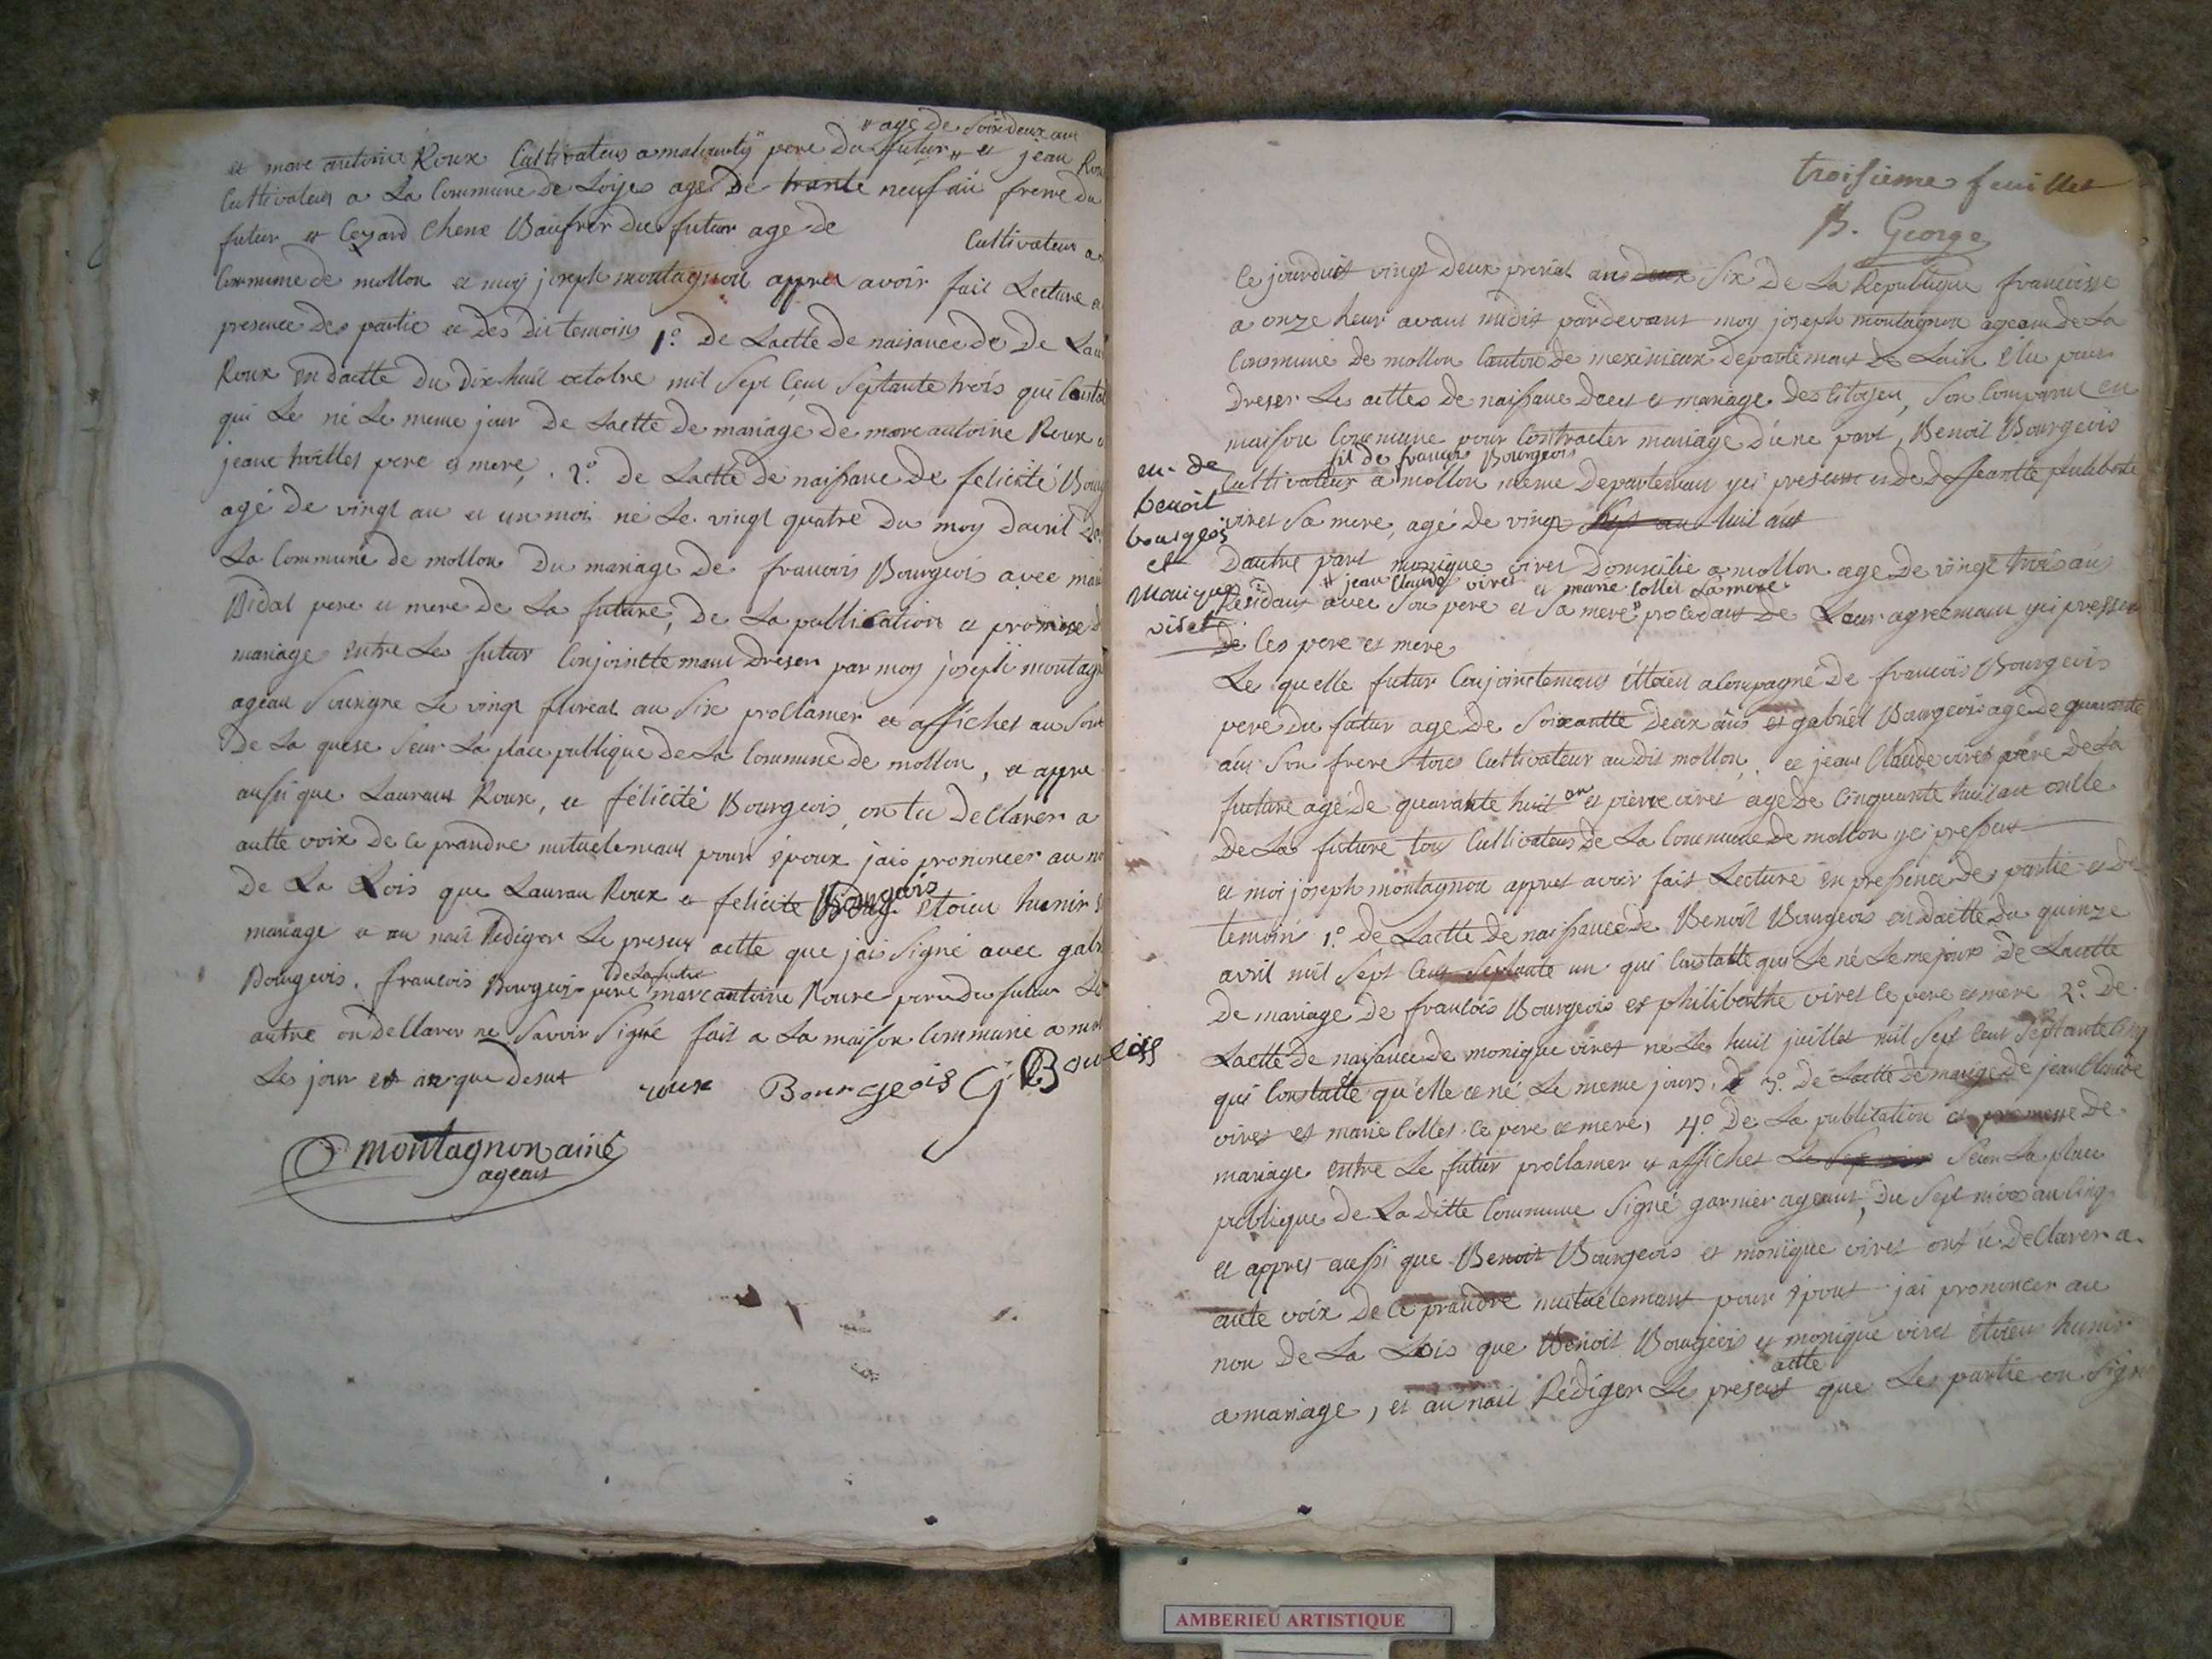 " age de soixdeux ans
et marc antoine Roux Cultivateur a pere du futur " et jean Roux
Cultivateur a La Commune de Loijes age de trante neuf an frerre du
futur et Cezard Chene Baufrer du futur age de Cultivateur a
Commune de mollon et moy joseph montagnon appres avoir fait Lecture en
presence des partie et des dit temoins 1.º De Lactte de naisance de De Laur
Roux en dactte du dix huit octobre mil Sept Cent Septante trois qui Constat
qui Le né Le meme jour De Lactte de mariage de marc antoine Roux et
jeane pere et mere, . 2.º de Lactte de naissance de felicité Bourg
agé de vingt an et un mois né Le vingt quatre du moy davril
La Commune de mollon du mariage de francois Bourgeois avec mari
Vidal pere et mere de La future, de La publication et promese d
mariage entre Les futur Conjoinctte mant dreser par moy joseph montagn
ageant Sousigne Le vingt floreal an Six proclamer et affichet au
De La Seur La place publique de La Commune de mollon, et appre
aussi que Laurant Roux, et félicité Bourgeois on tu declarer a
autte voix de ce prandre mutuelemant pour époux jais prononcer au no
De La Lois que Lauran Roux et felicite Bourgeois étoieu hunir
mariage et au nait Rediger Le present actte que jais Signé avec gabr
Bourgeois, francois Bourgeois pere de La futur marcantoine Rouxe pere du futur Le
autre on declarer ne Savoir Signé fait a La maison Commune a mol
Les jour et an que desus
roux Bourgeois G. Bourgeois
montagnon ainé
ageant
troisieme feuillet
B. George
Ce jourduit vingt deux prerial ans deux Six de La Republique francoisse
a onze heur avant midit pardevant moy joseph montagnon ageant de La
Commune de mollon Canton de meximieux departemant de Lain élu pour
Dreser Les acttes de naissance deces et mariage des Citoyen, Son Comparut en
maison Commune pour Contracter mariage d'une part, Benoit Bourgeois
fil de francois Bourgeois
Cultivateur a mollon meme departemant yci present et de deffeantte philiberte
viret Sa mere, agé de vingt Sept an huit ans
Dautre part monique viret Domicilié a mollon age de vingt trois ans
" jean Claude viret et marie Collet Sa mere
Résidant avec Son pere et Sa mere " procedant de Leur agreemant yci pressent
de Ces pere et mere
en. de
benoit
bourgeois
et
Monique
viret
Les quelle futur Conjoinctemant éttoien acompagné de francois Bourgeois
pere du futur age de Soixantte deux ans et gabriel Bourgeois age de quarante
ans Son frere tous Cultivateur au dit mollon, et jean Claude viret pere de La
future agé de quarante huit an et pierre viret age de Cinquante huit an onlle
De La future tous Cultivateur de La Commune de mollon yci present
et moi joseph montagnon appret avoir fait Lecture en pressence des partie et de
temoin 1.º de Lactte de naissance de Benoit Bourgeois en dactte du quinze
avril mil Sept Cent Septante un qui Constatte qui Le né Le me jours De Lactte
De mariage de francois Bourgeois et philiberthe viret Ce pere et mere 2.º de
Lactte de naisance de monique viret né Le huit juillet mil Sept Cent Septante Cinq
qui Constatte qu'elle ce né Le meme jours, 3.º de Lactte de mariage de jean Claude
viret et marie Collet Ce pere et mere, 4.º De La publication et promesse de
mariage entre Le futur proclamer et affichet Seur La place
publique de La ditte Commune Signé garnier ageant, du Sept nivos an Cinq
et appret aussi que Benoit Bourgeois et monique viret ont u declarer a
autte voix de ce prandre mutuélemant pour épout jai prononcer au
non De La Lois que Benoit Bourgeois et monique viret étoieu hunir
a mariage, et au nait Rédiger Le present actte que Les partie on Sign
AMBERIEU ARTISTIQUE